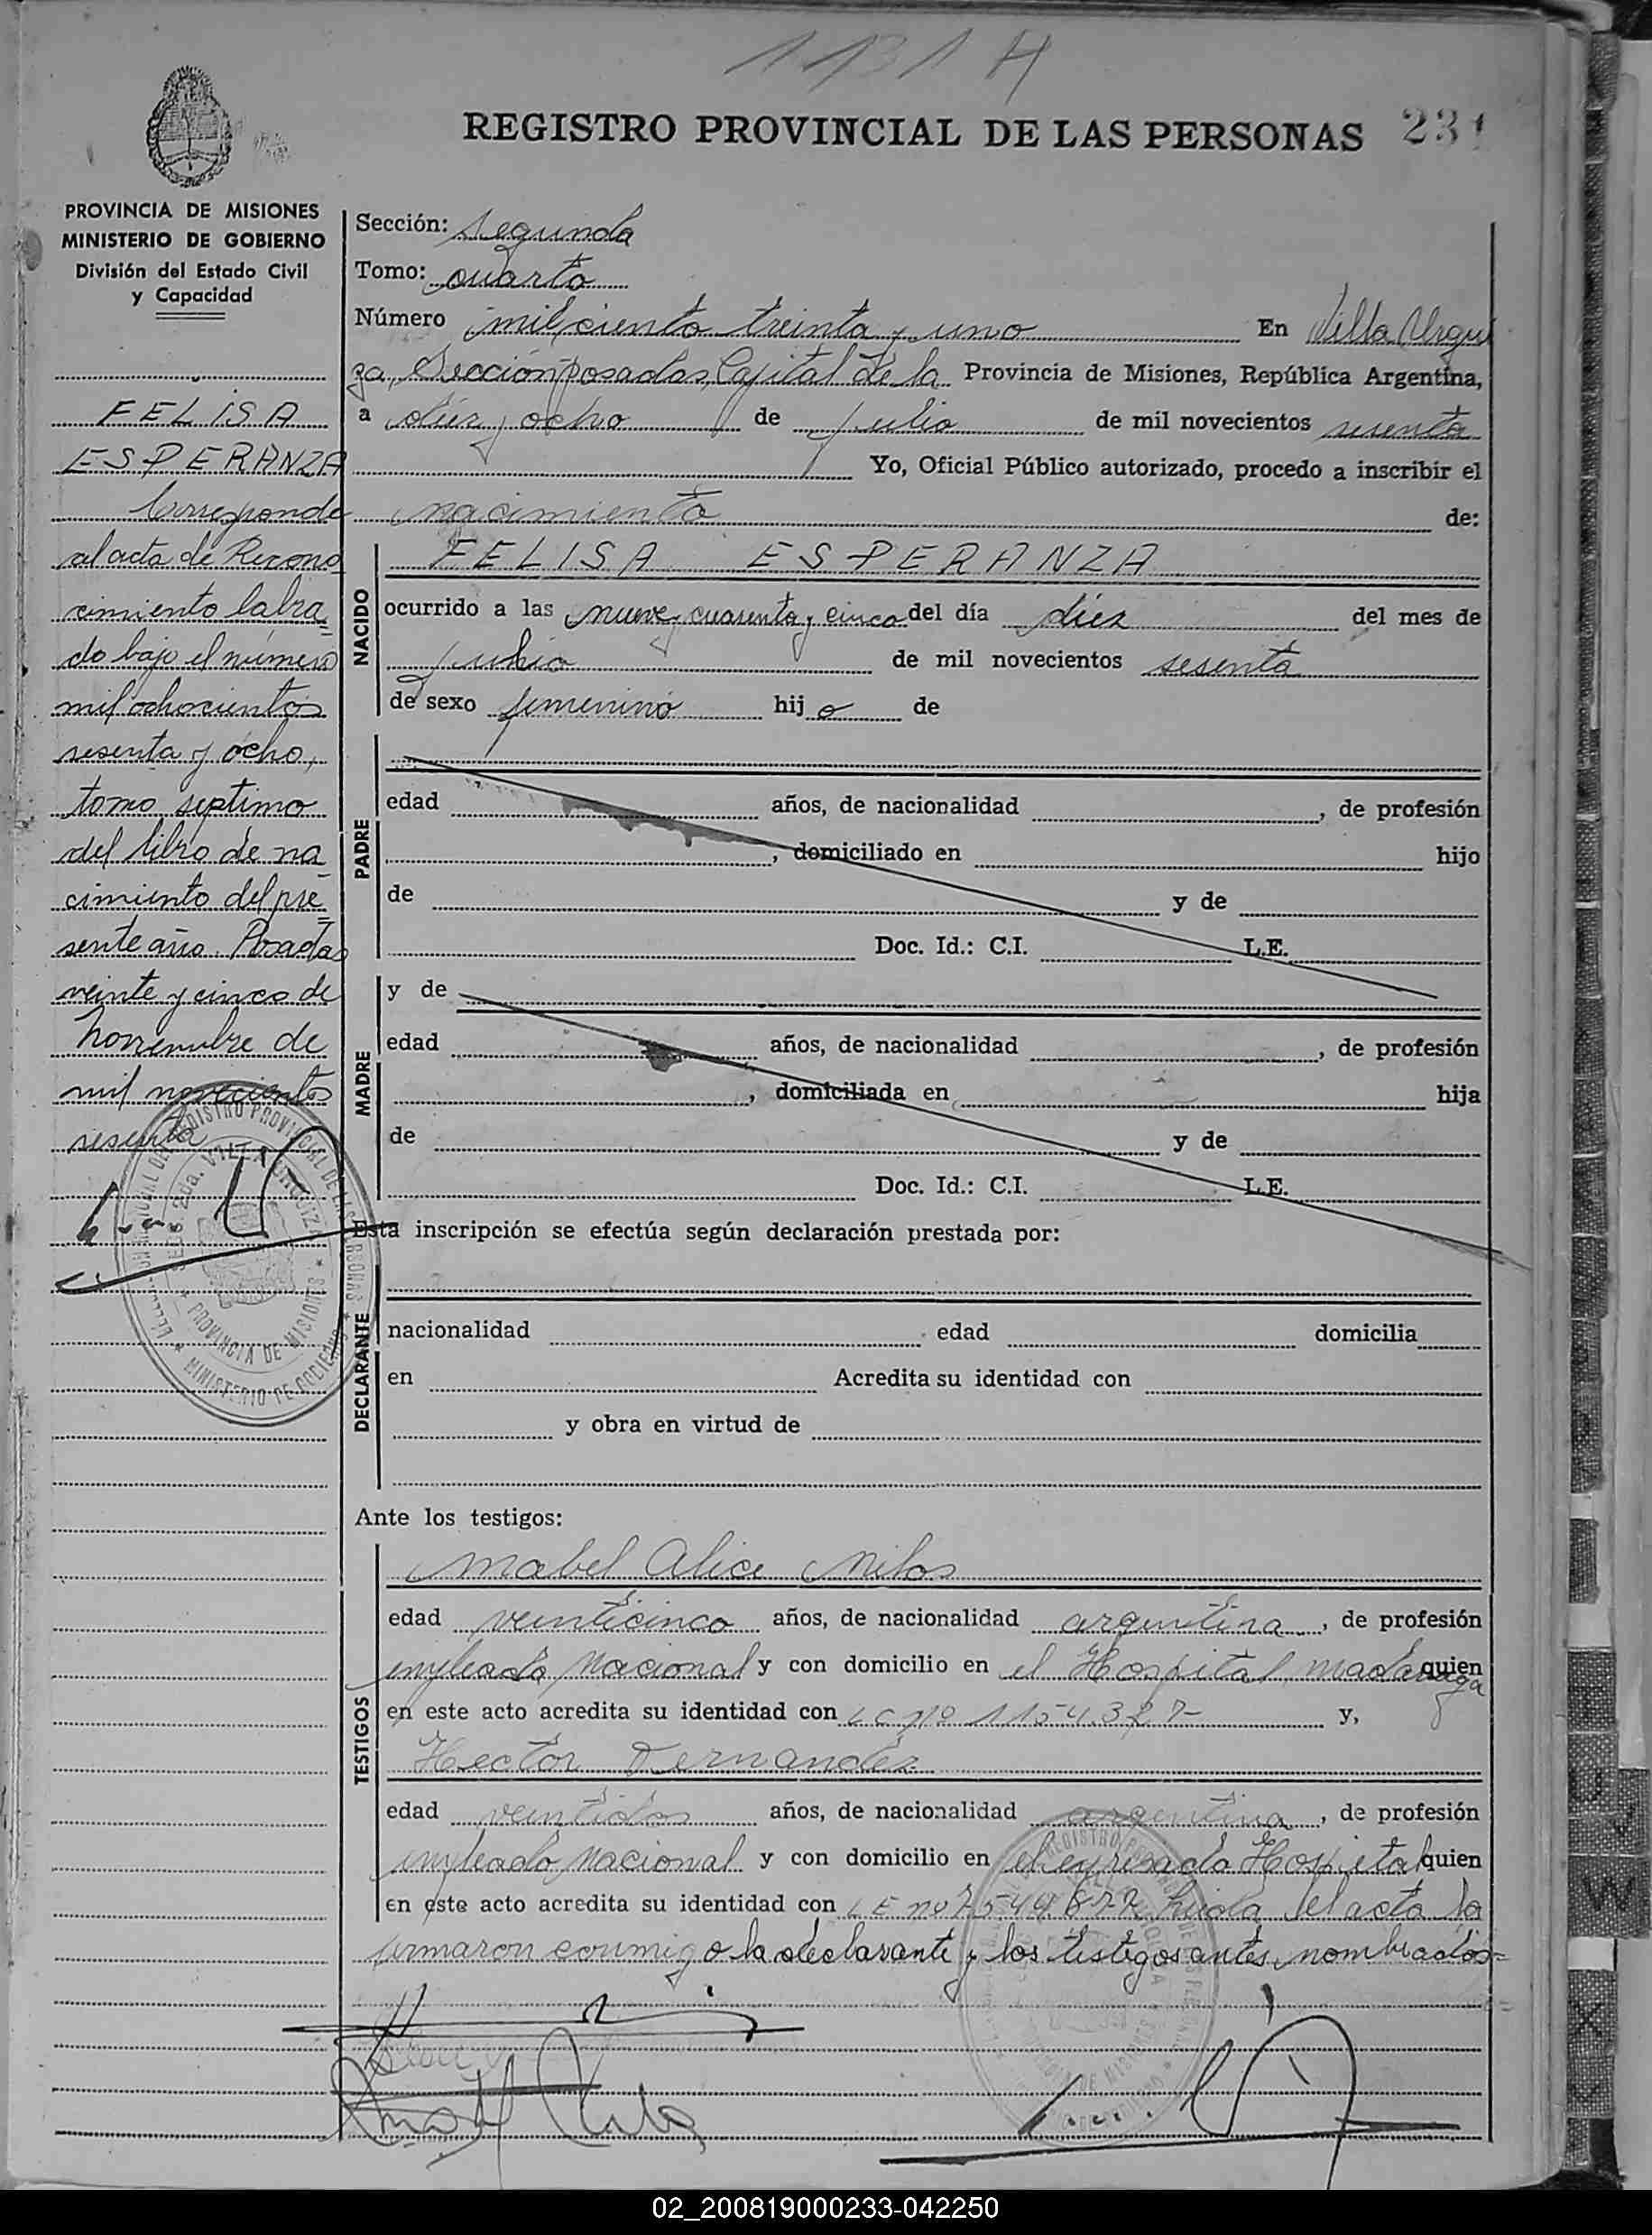 1131 H
REGISTRO PROVINCIAL DE LAS PERSONAS 231
PROVINCIA DE MISIONES
MINISTERIO DE GOBIERNO
División del Estado Civil
y Capacidad
FELISA
ESPERANZA
Corresponde
al acta de Recono
cimiento labra
do bajo el número
mil ochocientos
sesenta y ocho,
tomo septimo
del libro de na
cimiento del pre
sente año. Posadas
veinte y cinco de
noviembre de
mil novecientos
sesenta
Sección: segunda
Tomo: cuarto
Número mil ciento treinta y uno En Villa Urqui
za, Sección Posadas, Capital de la Provincia de Misiones, República Argentina,
a diez y ocho de julio de mil novecientos sesenta
Yo, Oficial Público autorizado, procedo a inscribir el
nacimiento de:
NACIDO
FELISA ESPERANZA
ocurrido a las nueve y cuarenta y cinco del día diez del mes de
de mil novecientos sesenta
de sexo femenino hij a de
PADRE
edad años, de nacionalidad , de profesión
, domiciliado en hijo
de y de
Doc. Id.: C.I. L.E.
MADRE
y de
edad años, de nacionalidad , de profesión
, domiciliada en hija
de y de
Doc. Id.: C.I. L.E.
Esta inscripción se efectúa según declaración prestada por:
DECLARANTE
nacionalidad edad domicilia
en Acredita su identidad con
y obra en virtud de
Ante los testigos:
TESTIGOS
Mabel Alice Milos
edad veinticinco años, de nacionalidad argentina, de profesión
empleada Nacional y con domicilio en el Hospital Madariaga quien
en este acto acredita su identidad con LC nº y,
Hector Fernandez
edad veintidos años, de nacionalidad argentina, de profesión
empleado Nacional y con domicilio en el expresado Hospital quien
en este acto acredita su identidad con LE nº leida el acta la
firmaron conmigo la declarante y los testigos antes nombrados=
REGISTRO PROVINCIAL DE LAS PERSONAS
Secc. 2da. VILLA URQUIZA
PROVINCIA DE MISIONES
MINISTERIO DE GOBIERNO
02_200819000233-042250